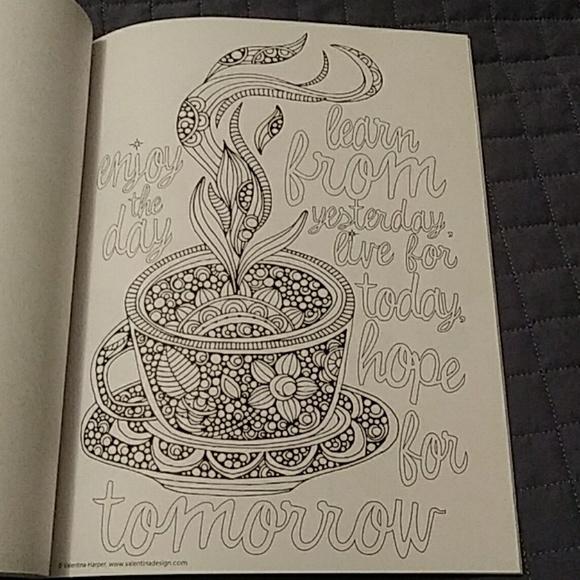 enjoy
the
day
learn
from
yesterday,
live for
today,
hope
for
tomorrow
© Valentina Harper, www.valentinadesign.com